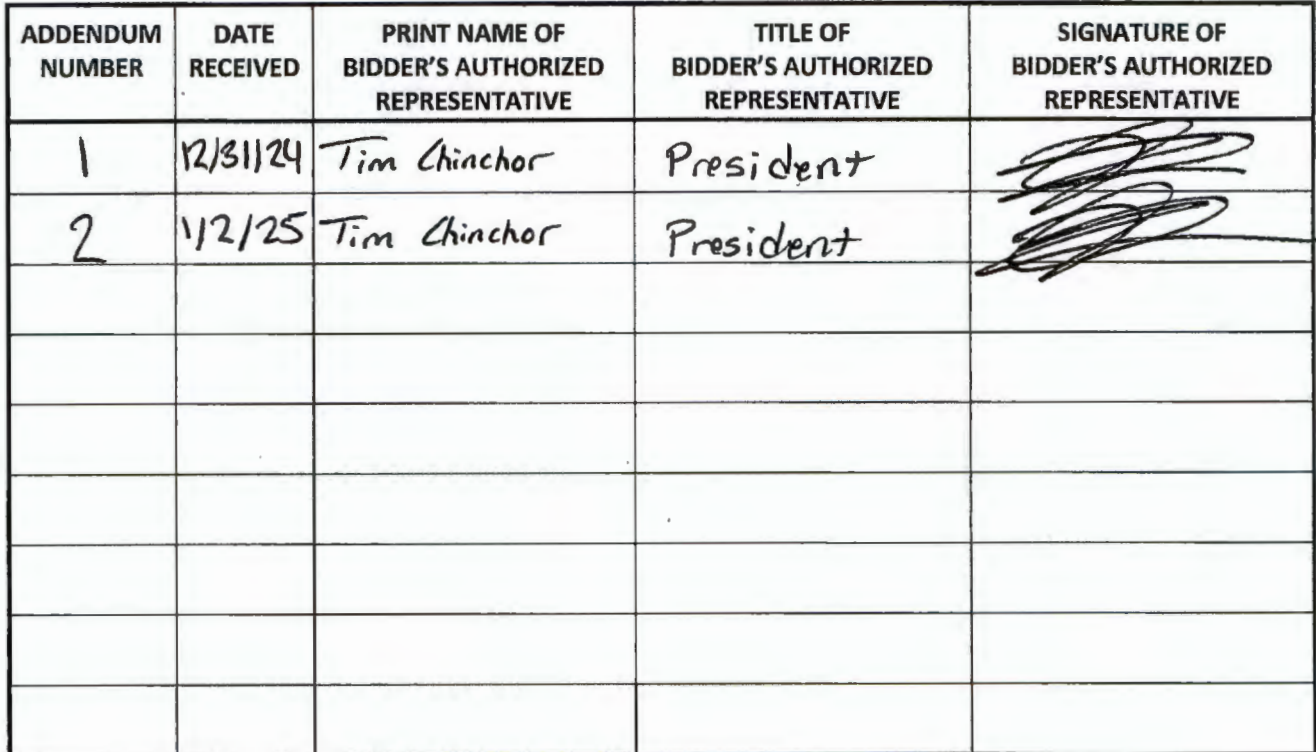 ADDENDUM NUMBER DATE RECEIVED PRINT NAME OF BIDDER'S AUTHORIZED REPRESENTATIVE TITLE OF BIDDER'S AUTHORIZED REPRESENTATIVE SIGNATURE OF BIDDER'S AUTHORIZED REPRESENTATIVE
1 12/31/24 Tim Chinchor President
2 1/2/25 Tim Chinchor President